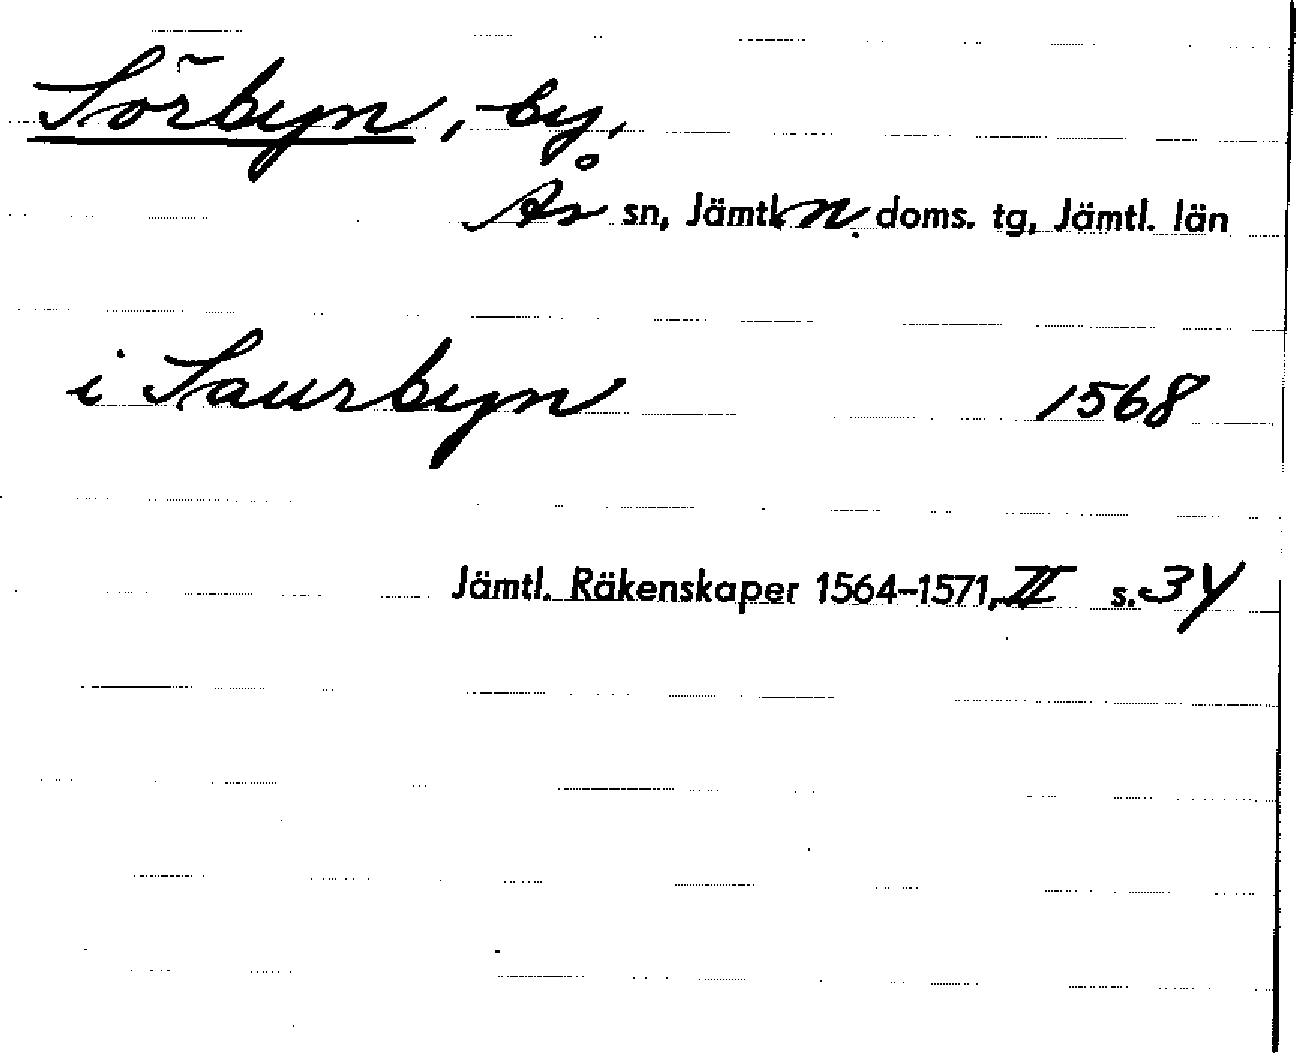 Sörbyn, -by,
Ås sn, Jämtl. n. doms. tg, Jämtl. län
i Saurbyn 1568
Jämtl. Räkenskaper 1564–1571, II s. 34